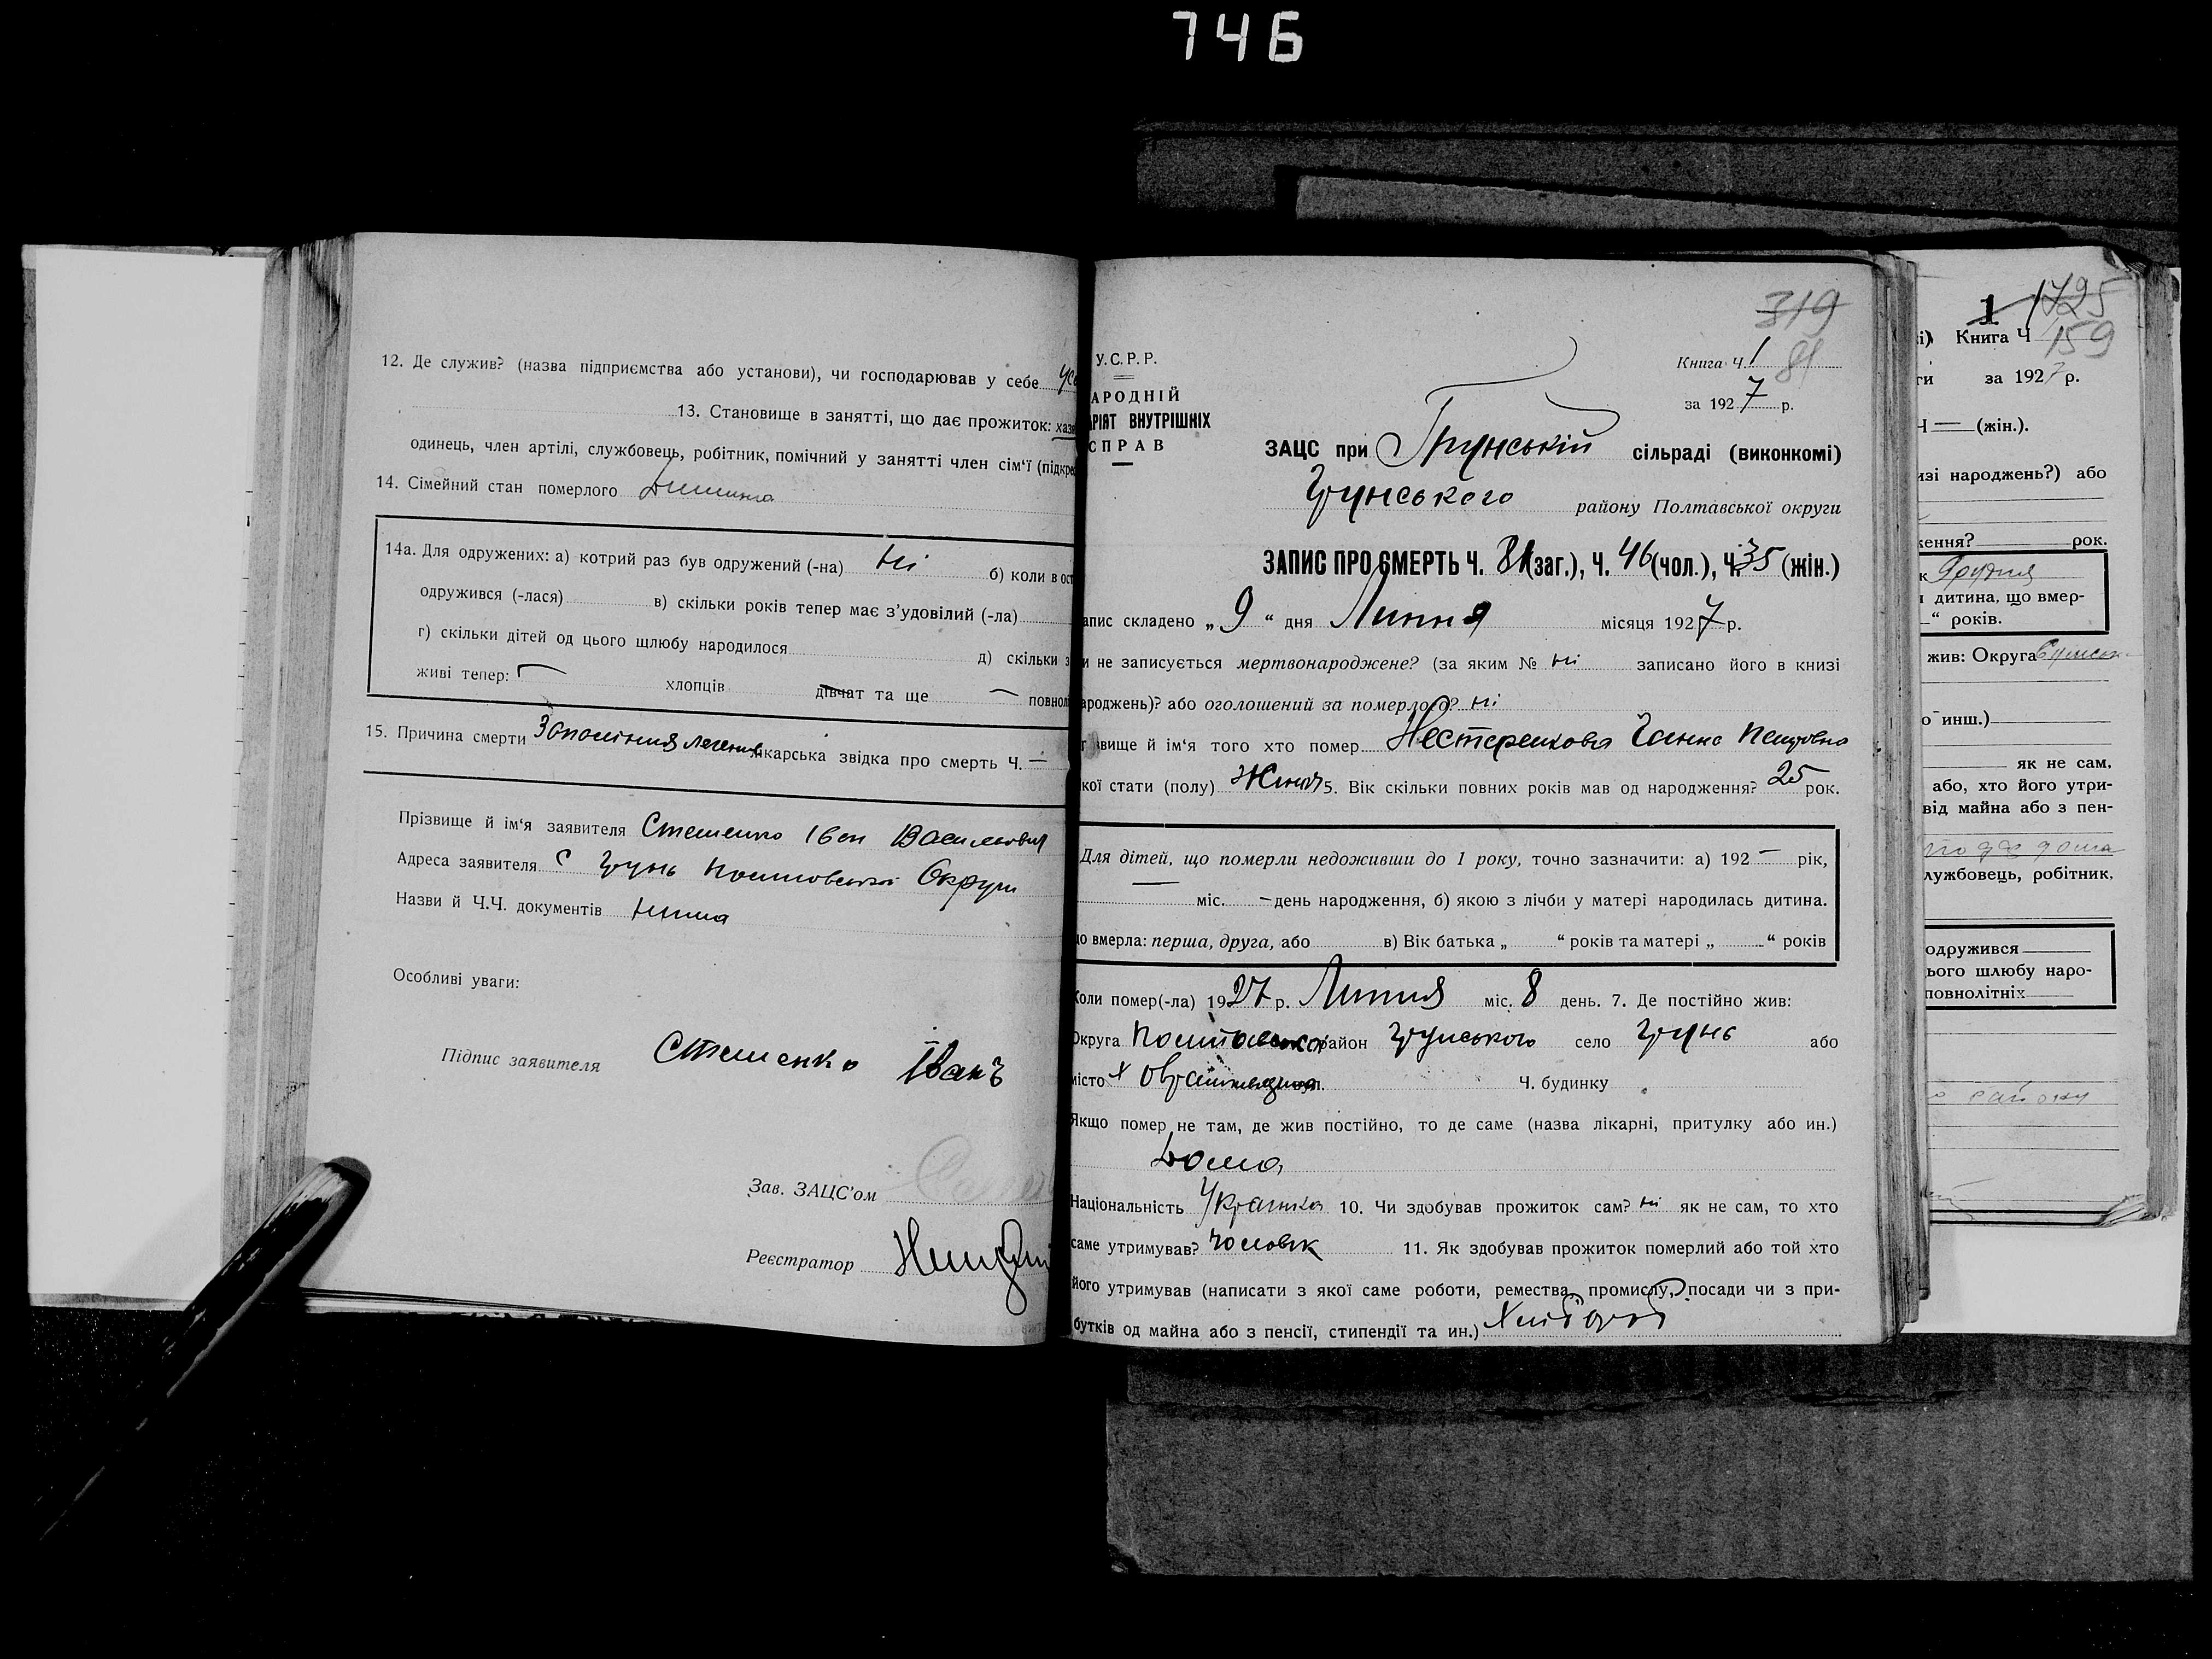 746
12. Де служив? (назва підприємства або установи), чи господарював у себе
13. Становище в занятті, що дає прожиток: хазя
одинець, член артілі, службовець, робітник, помічний у занятті член сім'ї (підкре
14. Сімейний стан померлого
14а. Для одружених: а) котрий раз був одружений (-на) Ні б) коли в ост
одружився (-лася) в) скільки років тепер має з'удовілий (-ла)
г) скільки дітей од цього шлюбу народилося д) скільки з
живі тепер: — хлопців дівчат та ще — повнолі
15. Причина смерти Запоління легенів лікарська звідка про смерть Ч. —
Прізвище й ім'я заявителя Стешенко Іван Васильович
Адреса заявителя С Грунь Полтовської Округи
Назви й Ч.Ч. документів нима
Особливі уваги:
Підпис заявителя Стешенко Іванъ
Зав. ЗАЦС'ом
Реєстратор
319
У.С.Р.Р.
Книга Ч. 1 81
АРОДНІЙ
за 1927 р.
АРІЯТ ВНУТРІШНІХ
СПРАВ
ЗАЦС при Грунській сільраді (виконкомі)
Грунського району Полтавської округи
ЗАПИС ПРО СМЕРТЬ Ч. 81 (заг.), Ч. 46 (чол.), Ч. 35 (жін.)
апис складено „ 9 “ дня Липня місяця 1927 р.
и не записується мертвонароджене? (за яким № ні записано його в книзі
ароджень)? або оголошений за померлого? ні
вище й ім'я того хто помер Нестеренкова Ганна Петровна
кої стати (полу) Жіноч 5. Вік скільки повних років мав од народження? 25 рок.
Для дітей, що померли недоживши до 1 року, точно зазначити: а) 192 — рік,
— міс. — день народження, б) якою з лічби у матері народилась дитина.
що вмерла: перша, друга, або в) Вік батька „ “ років та матері „ “ років
Коли помер(-ла) 1927 р. Липня міс. 8 день. 7. Де постійно жив:
Округа Полтавсько район Грунського село Грунь або
місто х Ч. будинку
Якщо помер не там, де жив постійно, то де саме (назва лікарні, притулку або ин.)
Дома
Національність Українка 10. Чи здобував прожиток сам? ні як не сам, то хто
саме утримував? Чоловік 11. Як здобував прожиток померлий або той хто
його утримував (написати з якої саме роботи, ремества, промислу, посади чи з при-
бутків од майна або з пенсії, стипендії та ин.) Хлібороб
1 1725
і) Книга Ч 159
ги за 1927 р.
Ч — (жін.).
изі народжень?) або
ження? рок.
к Грудня
я дитина, що вмер-
“ років.
жив: Округа Сумськ
о инш.)
як не сам,
або, хто його утри-
від майна або з пен-
лужбовець, робітник,
одружився
ього шлюбу наро-
повнолітніх
району